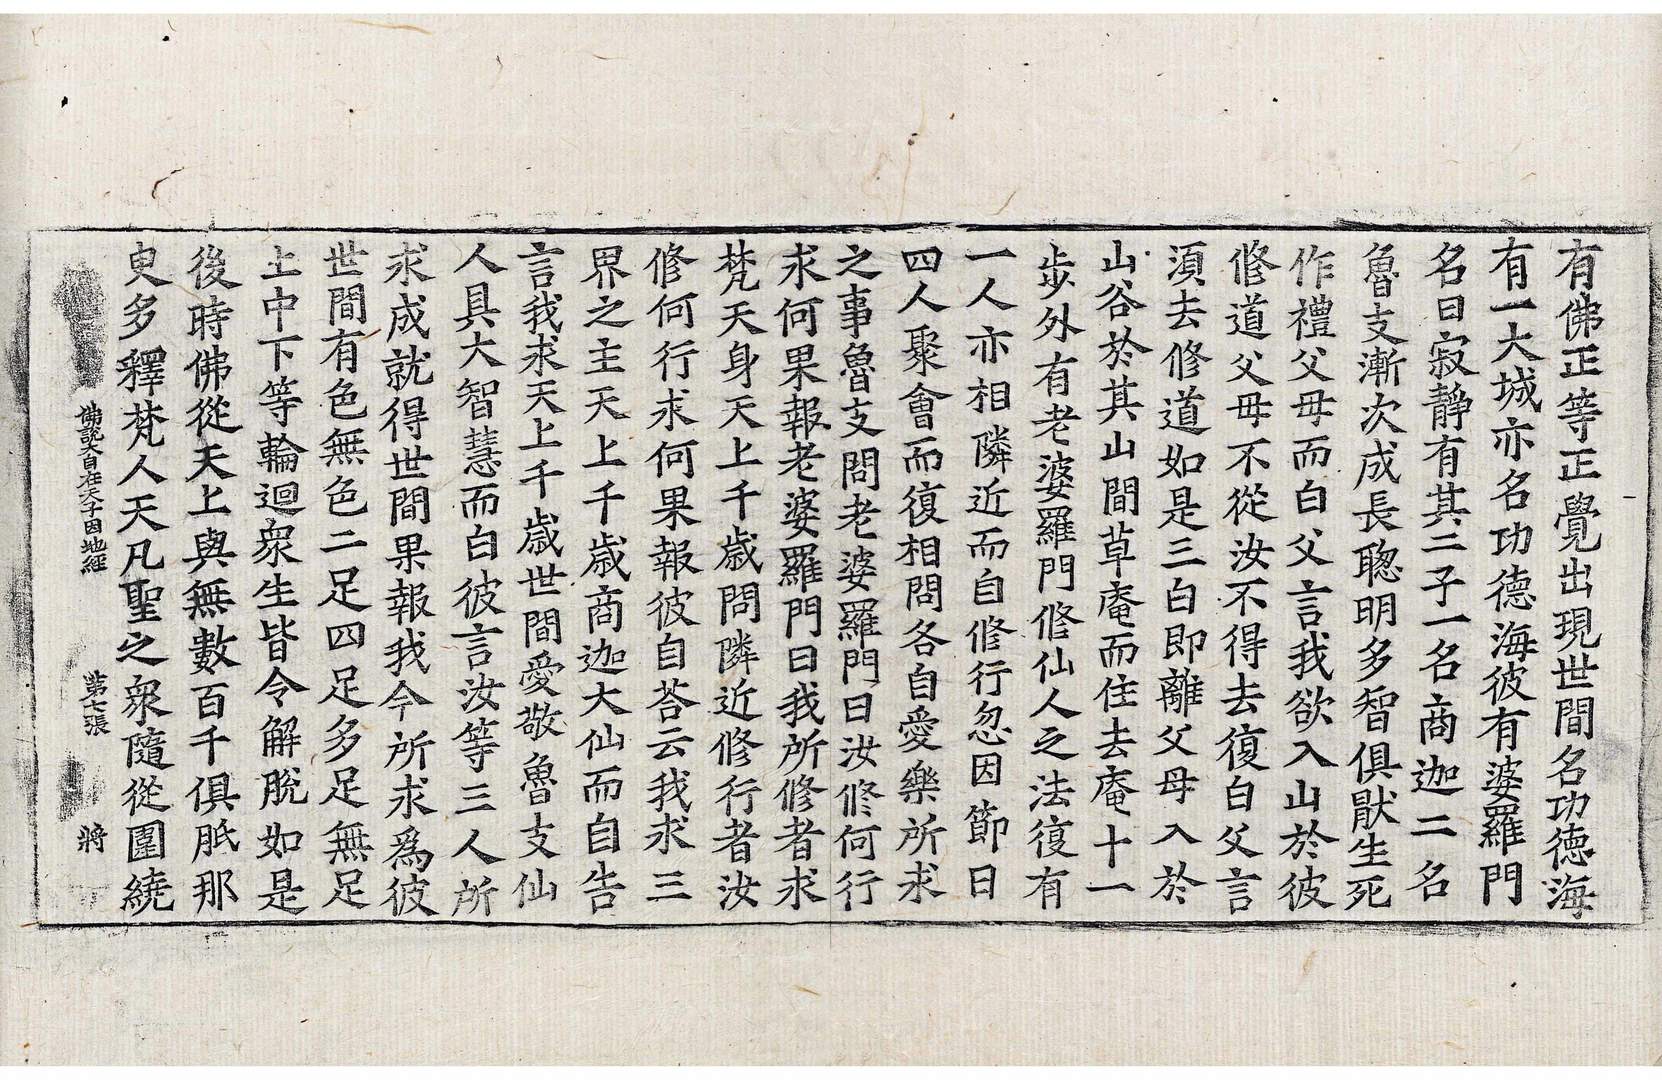 有佛正等正覺出現世間名功德海
有一大城亦名功德海彼有婆羅門
名曰寂靜有其二子一名商迦二名
魯支漸次成長聦明多智俱猒生死
作禮父母而白父言我欲入山於彼
修道父母不從汝不得去復白父言
湏去修道如是三白即離父母入於
山谷於其山間草庵而住去庵十一
步外有老婆羅門修仙人之法復有
一人亦相隣近而自修行忽因節日
四人聚會而復相問各自愛樂所求
之事魯支問老婆羅門曰汝修何行
求何果報老婆羅門曰我所修者求
梵天身天上千歲問隣近修行者汝
修何行求何果報彼自荅云我求三
界之主天上千歲商迦大仙而自告
言我求天上千歲世間愛敬魯支仙
人具大智慧而白彼言汝等三人所
求成就得世間果報我今所求爲彼
世間有色無色二足四足多足無足
上中下等輪迴衆生皆令解脫如是
後時佛從天上與無數百千俱胝那
由多釋梵人天凡聖之衆隨從圍繞
佛說大自在天子因地經 第七張 將